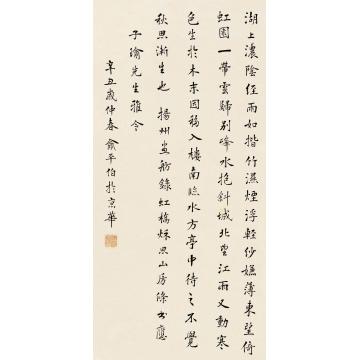 湖上濃陰經雨如揩竹濕煙浮輕紗嫌薄東望倚
虹園一帶雲歸別峰水抱斜城北望江雨又動寒
色生於木末因移入樓南臨水方亭中待之不覺
秋思漸生也　揚州畫舫錄虹橋秋思山房條書應
子瑜先生雅令
辛丑歲仲春俞平伯於京華